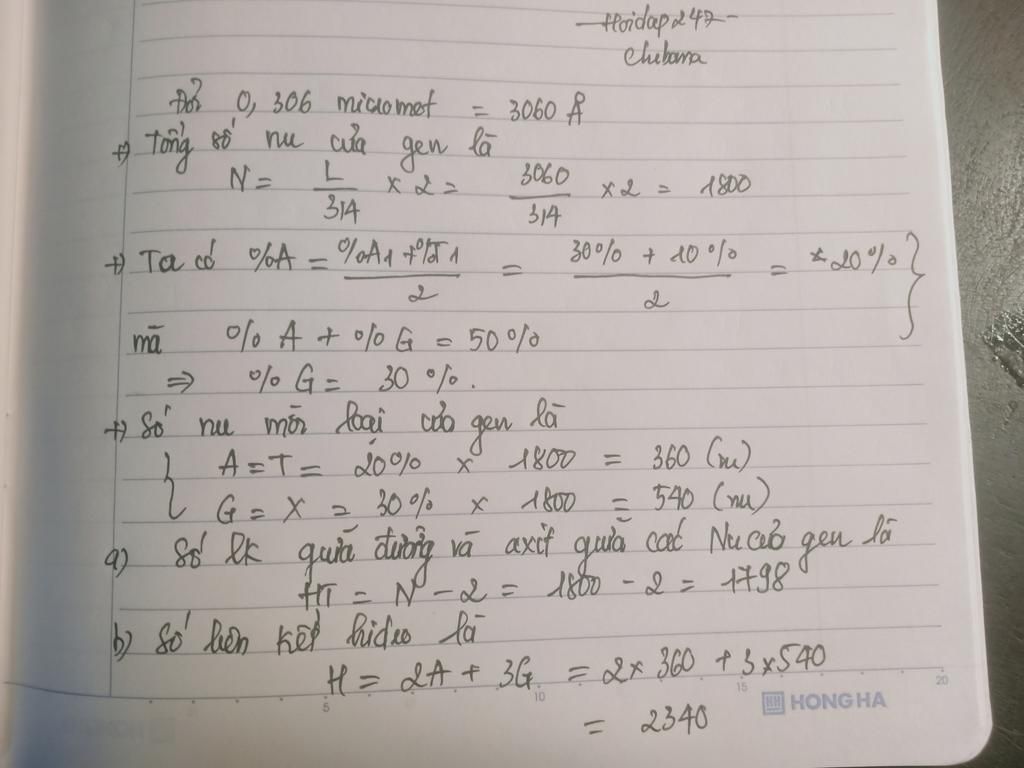 Hoidap247
Chibana
Đổi 0,306 micromet = 3060 Å
+) Tổng số nu của gen là
N = L/3,4 × 2 = 3060/3,4 × 2 = 1800
+) Ta có %A = (%A1 + %T1)/2 = (30% + 10%)/2 = 20%
mà % A + % G = 50%
⇒ % G = 30 %.
+) Số nu mỗi loại của gen là
A = T = 20% × 1800 = 360 (nu)
G = X = 30% × 1800 = 540 (nu)
a) Số lk giữa đường và axit giữa các Nu của gen là
HT = N - 2 = 1800 - 2 = 1798
b) Số liên kết hidro là
H = 2A + 3G = 2 × 360 + 3 × 540
= 2340
5 10 15 20
HH HONG HA